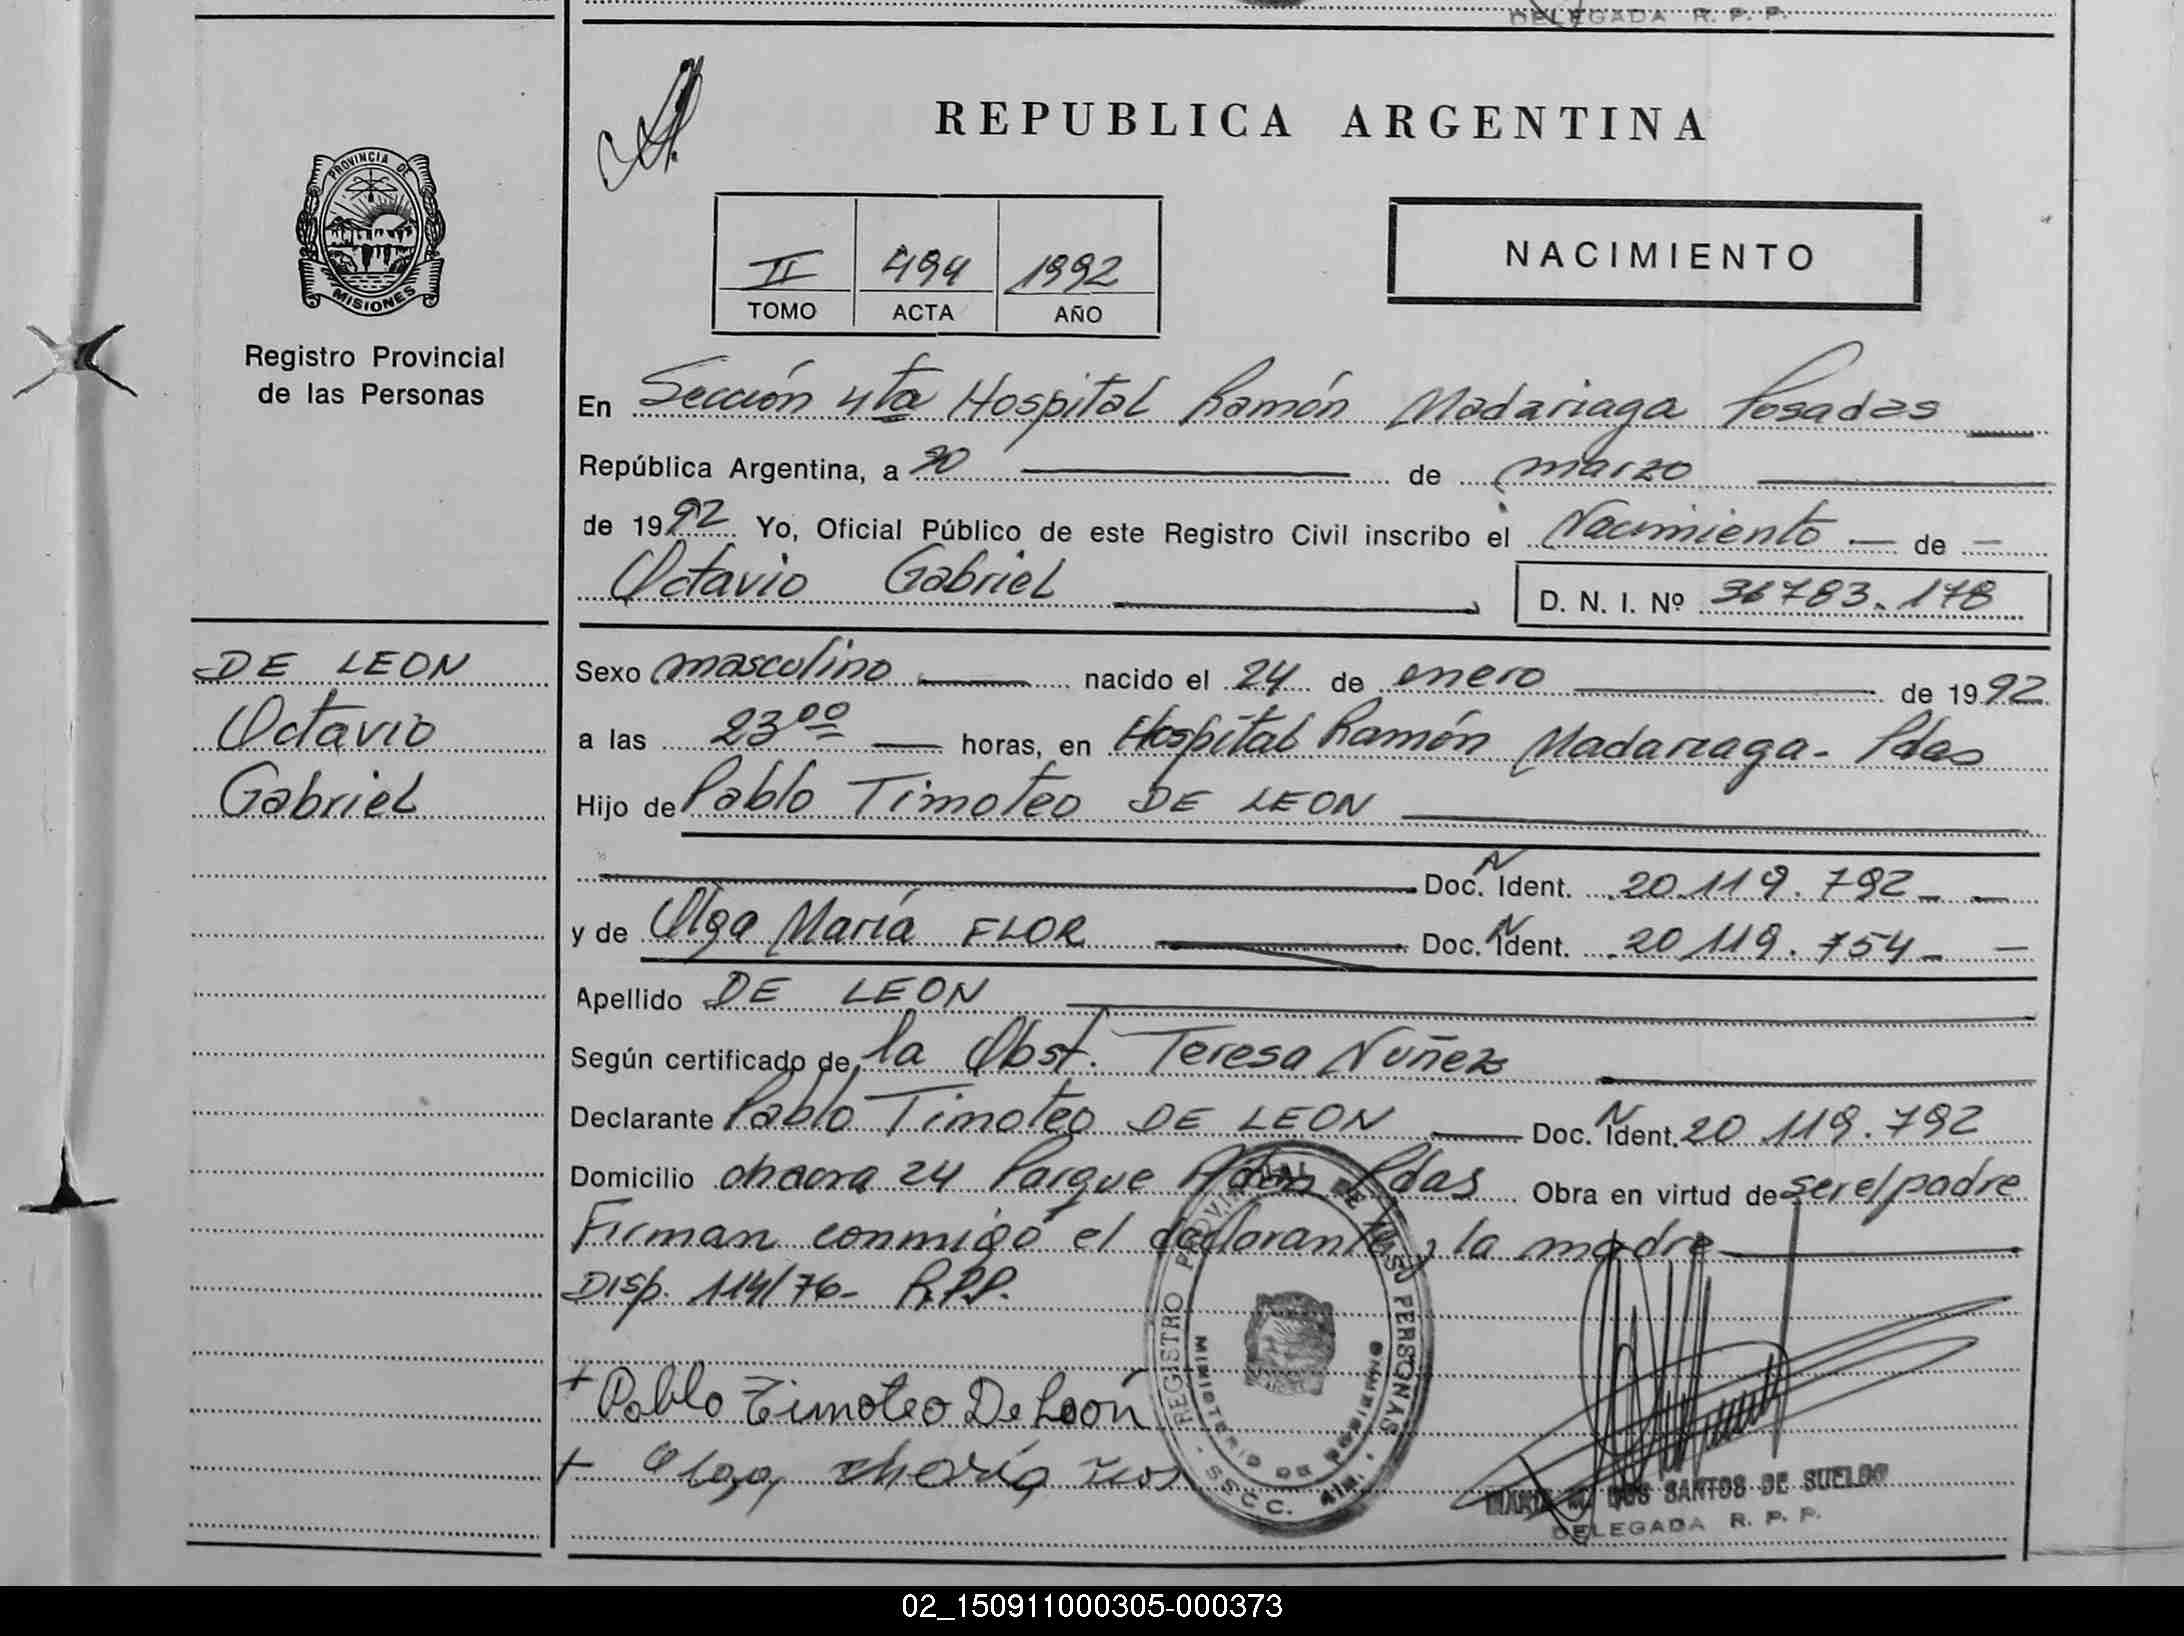 DELEGADA R. P. P.
REPUBLICA ARGENTINA
PROVINCIA DE
MISIONES
Registro Provincial
de las Personas
II 494 1992
TOMO ACTA AÑO
NACIMIENTO
En Sección 4ta Hospital Ramón Madariaga Posadas
República Argentina, a 30 de marzo
de 1992 Yo, Oficial Público de este Registro Civil inscribo el Nacimiento de
Octavio Gabriel
D. N. I. Nº 36783.178
DE LEON
Octavio
Gabriel
Sexo masculino nacido el 24 de enero de 1992
a las 23 00 horas, en Hospital Ramón Madariaga - Pdas
Hijo de Pablo Timoteo DE LEON
Doc. N Ident. 20.119.792
y de Olga María FLOR Doc. N Ident. 20119.754
Apellido DE LEON
Según certificado de la Obst. Teresa Nuñez
Declarante Pablo Timoteo DE LEON Doc. N Ident. 20 119.792
Domicilio chacra 24 Parque Adam Pdas Obra en virtud de ser el padre
Firman conmigo el declarante y la madre
Disp. 114/76- R.P.P.
+ Pablo Timoteo De León
+ Olga María
REGISTRO PROVINCIAL DE LAS PERSONAS
MINISTERIO DE GOBIERNO
SSCC.
MARIA M. DOS SANTOS DE SUELDO
DELEGADA R. P. P.
02_150911000305-000373